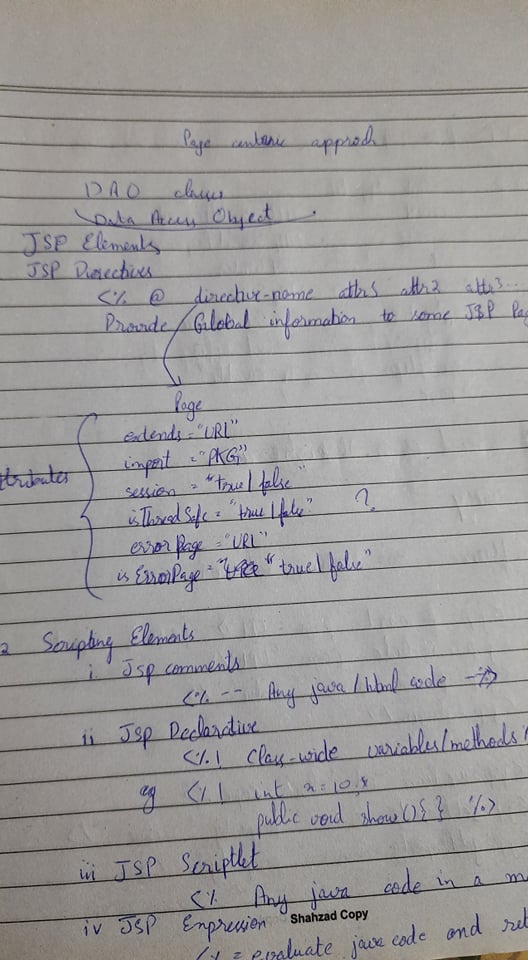 Page centric approch
DAO classes
Data Access Object
JSP Elements
JSP Directives
<% @ directive-name attr1 attr2 attr3...
Provide Global information to some JSP Pag
Page
ttributes
extends = "URL"
import = "PKG"
session = "true | false"
isThreadSafe = "true | false" ?
errorPage = "URL"
is ErrorPage = "true | false"
2 Scripting Elements
i. JSP comments
<% -- Any java / html code --%>
ii JSP Declarative
<% ! Class-wide variables/methods /
eg <% ! int x = 10;
public void show() { } %>
iii JSP Scriptlet
<% Any java code in a m
iv JSP Expression
Shahzad Copy
<% = evaluate java code and ret